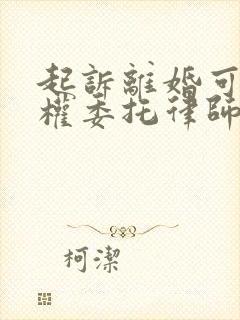 起訴離婚可
權委托律師
柯潔